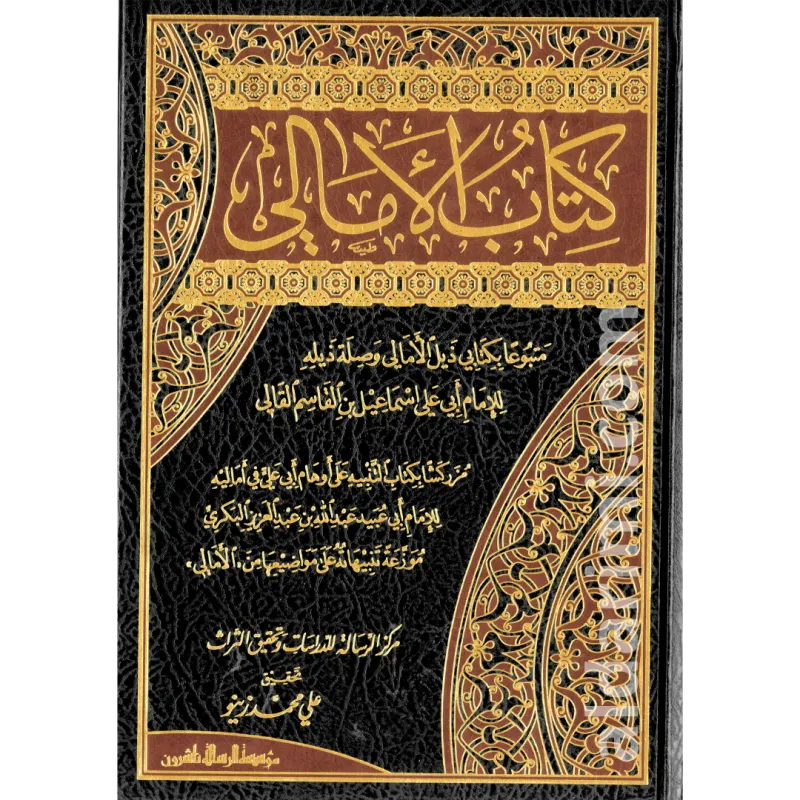 كِتَابُ الأَمَالِي
مَتبُوعًا بِكِتَابَي ذَيلِ الأَمَالِي وَصِلَة ذَيلِهِ
لِلإِمَامِ أَبِي عَلي إِسْمَاعِيْل بنِ القَاسِم القَالِي
مُزَركشًا بِكِتَابِ التَّنْبِيهِ عَلَى أَوهَام أَبِي عَليٍّ فِي أَمَالِيهِ
لِلإِمَامِ أَبِي عُبَيد عَبْدِ اللَّهِ بن عَبْدِ العَزِيزِ البَكرِي
مُوَزَّعَةً تَنبِيهَاتُهُ عَلَى مَوَاضِيعِهَا مِنَ «الأَمَالِي»
مركز الرسالة للدراسات وتحقيق التراث
تحقيق
علي محمد زينو
مؤسسة الرسالة ناشرون